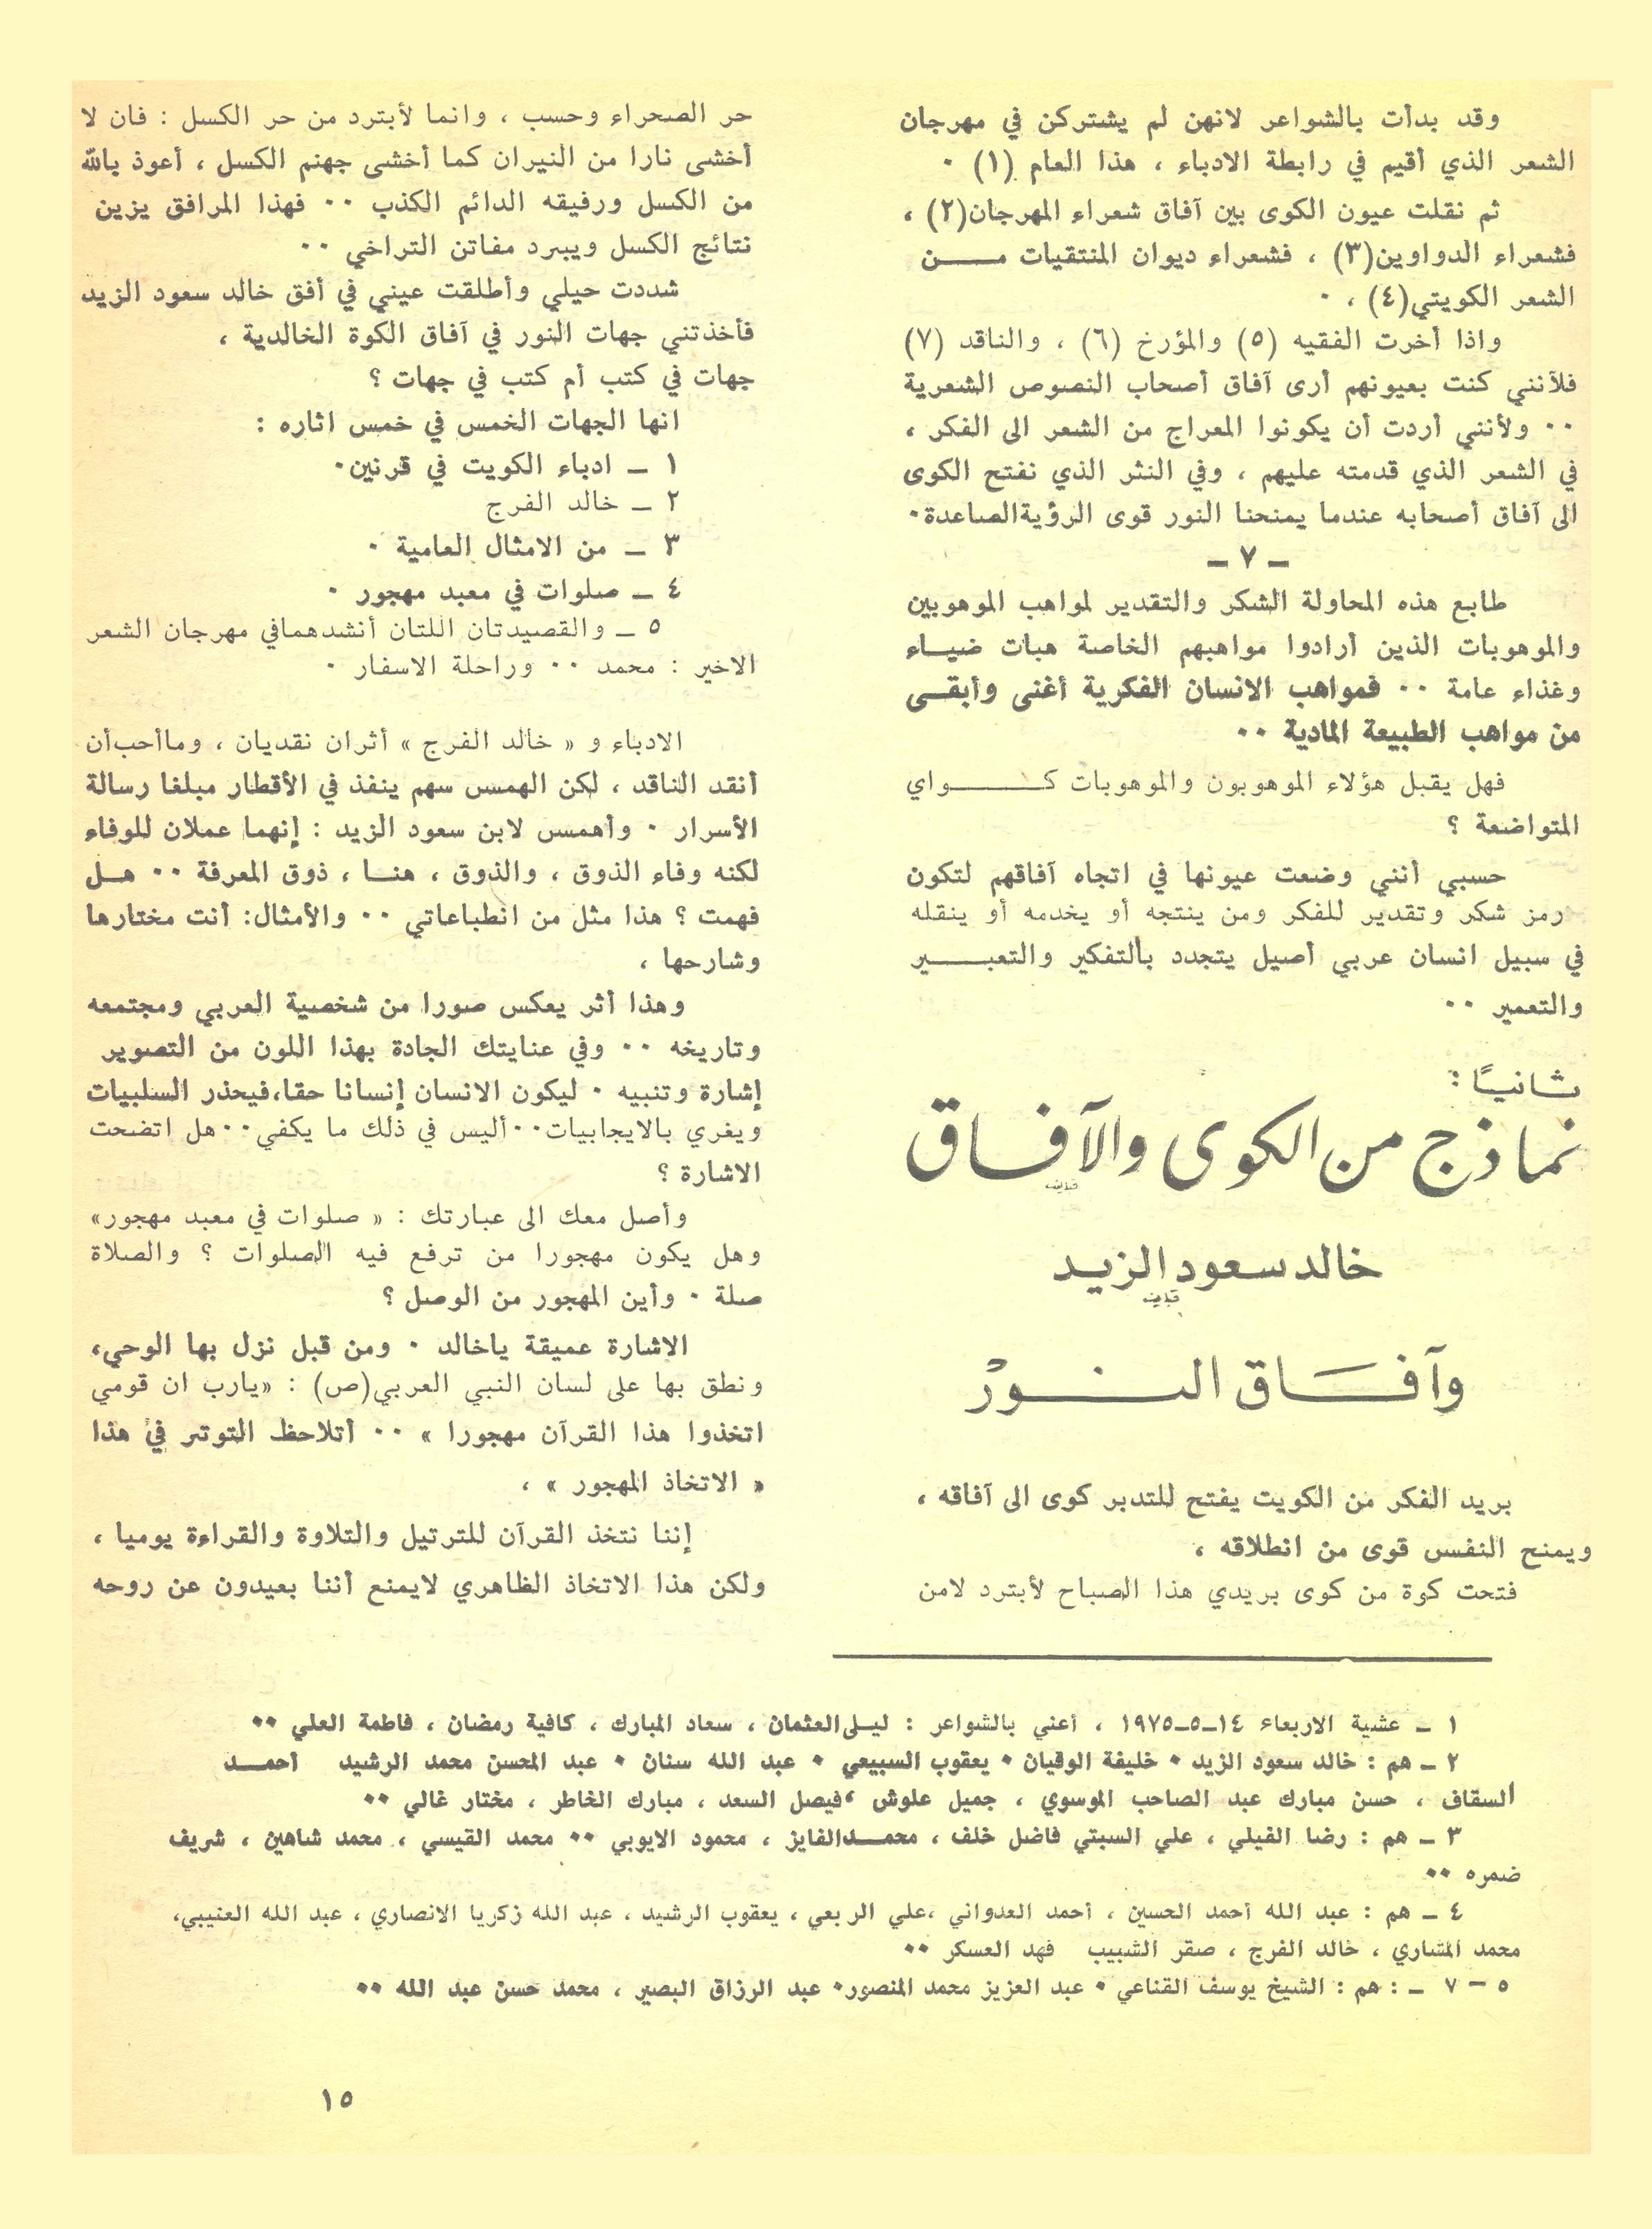 وقد بدأت بالشواعر لانهن لم يشتركن في مهرجان
الشعر الذي أقيم في رابطة الادباء ، هذا العام (١) ٠
ثم نقلت عيون الكوى بين آفاق شعراء المهرجان(٢) ،
فشعراء الدواوين(٣) ، فشعراء ديوان المنتقيات مــــن
الشعر الكويتي(٤) ، ٠
واذا أخرت الفقيه (٥) والمؤرخ (٦) ، والناقد (٧)
فلأنني كنت بعيونهم أرى آفاق أصحاب النصوص الشعرية
٠٠ ولأنني أردت أن يكونوا المعراج من الشعر الى الفكر ،
في الشعر الذي قدمته عليهم ، وفي النثر الذي نفتح الكوى
الى آفاق أصحابه عندما يمنحنا النور قوى الرؤيةالصاعدة٠
– ٧ –
طابع هذه المحاولة الشكر والتقدير لمواهب الموهوبين
والموهوبات الذين أرادوا مواهبهم الخاصة هبات ضيــاء
وغذاء عامة ٠٠ فمواهب الانسان الفكرية أغنى وأبقــى
من مواهب الطبيعة المادية ٠٠
فهل يقبل هؤلاء الموهوبون والموهوبات كــــــواي
المتواضعة ؟
حسبي أنني وضعت عيونها في اتجاه آفاقهم لتكون
رمز شكر وتقدير للفكر ومن ينتجه أو يخدمه أو ينقله
في سبيل انسان عربي أصيل يتجدد بالتفكير والتعبــــير
والتعمير ٠٠
ثانيًا :
نماذج من الكوى والآفاق
خالد سعود الزيد
وآفاق النور
بريد الفكر من الكويت يفتح للتدبر كوى الى آفاقه ،
ويمنح النفس قوى من انطلاقه ،
فتحت كوة من كوى بريدي هذا الصباح لأبترد لامن
حر الصحراء وحسب ، وانما لأبترد من حر الكسل : فان لا
أخشى نارا من النيران كما أخشى جهنم الكسل ، أعوذ بالله
من الكسل ورفيقه الدائم الكذب ٠٠ فهذا المرافق يزين
نتائج الكسل ويبرد مفاتن التراخي ٠٠
شددت حيلي وأطلقت عيني في أفق خالد سعود الزيد
فأخذتني جهات النور في آفاق الكوة الخالدية ،
جهات في كتب أم كتب في جهات ؟
انها الجهات الخمس في خمس اثاره :
١ – ادباء الكويت في قرنين٠
٢ – خالد الفرج
٣ – من الامثال العامية ٠
٤ – صلوات في معبد مهجور ٠
٥ – والقصيدتان اللتان أنشدهمافي مهرجان الشعر
الاخير : محمد ٠٠ وراحلة الاسفار ٠
الادباء و « خالد الفرج » أثران نقديان ، وماأحب‌أن
أنقد الناقد ، لكن الهمس سهم ينفذ في الأقطار مبلغا رسالة
الأسرار ٠ وأهمس لابن سعود الزيد : إنهما عملان للوفاء
لكنه وفاء الذوق ، والذوق ، هنــا ، ذوق المعرفة ٠٠ هــل
فهمت ؟ هذا مثل من انطباعاتي ٠٠ والأمثال: أنت مختارها
وشارحها ،
وهذا أثر يعكس صورا من شخصية العربي ومجتمعه
وتاريخه ٠٠ وفي عنايتك الجادة بهذا اللون من التصوير
إشارة وتنبيه ٠ ليكون الانسان إنسانا حقا،فيحذر السلبيات
ويغري بالايجابيات٠٠أليس في ذلك ما يكفي٠٠هل اتضحت
الاشارة ؟
وأصل معك الى عبارتك : « صلوات في معبد مهجور»
وهل يكون مهجورا من ترفع فيه الصلوات ؟ والصلاة
صلة ٠ وأين المهجور من الوصل ؟
الاشارة عميقة ياخالد ٠ ومن قبل نزل بها الوحي،
ونطق بها على لسان النبي العربي(ص) : «يارب ان قومي
اتخذوا هذا القرآن مهجورا » ٠٠ أتلاحظ التوتر في هذا
« الاتخاذ المهجور » ،
إننا نتخذ القرآن للترتيل والتلاوة والقراءة يوميا ،
ولكن هذا الاتخاذ الظاهري لايمنع أننا بعيدون عن روحه
١ – عشية الاربعاء ١٤–٥–١٩٧٥ ، أعني بالشواعر : ليـلى‌العثمان ، سعاد المبارك ، كافية رمضان ، فاطمة العلي ٠٠
٢ – هم : خالد سعود الزيد ٠ خليفة الوقيان ٠ يعقوب السبيعي ٠ عبد الله سنان ٠ عبد المحسن محمد الرشيد أحمــد
السقاف ، حسن مبارك عبد الصاحب الموسوي ، جميل علوش ،فيصل السعد ، مبارك الخاطر ، مختار غالي ٠٠
٣ – هم : رضا الفيلي ، علي السبتي فاضل خلف ، محمــدالفايز ، محمود الايوبي ٠٠ محمد القيسي ، محمد شاهين ، شريف
ضمره ٠٠
٤ – هم : عبد الله أحمد الحسين ، أحمد العدواني ،علي الربعي ، يعقوب الرشيد ، عبد الله زكريا الانصاري ، عبد الله العتيبي،
محمد المشاري ، خالد الفرج ، صقر الشبيب فهد العسكر ٠٠
٥ – ٧ – : هم : الشيخ يوسف القناعي ٠ عبد العزيز محمد المنصور٠ عبد الرزاق البصير ، محمد حسن عبد الله ٠٠
١٥